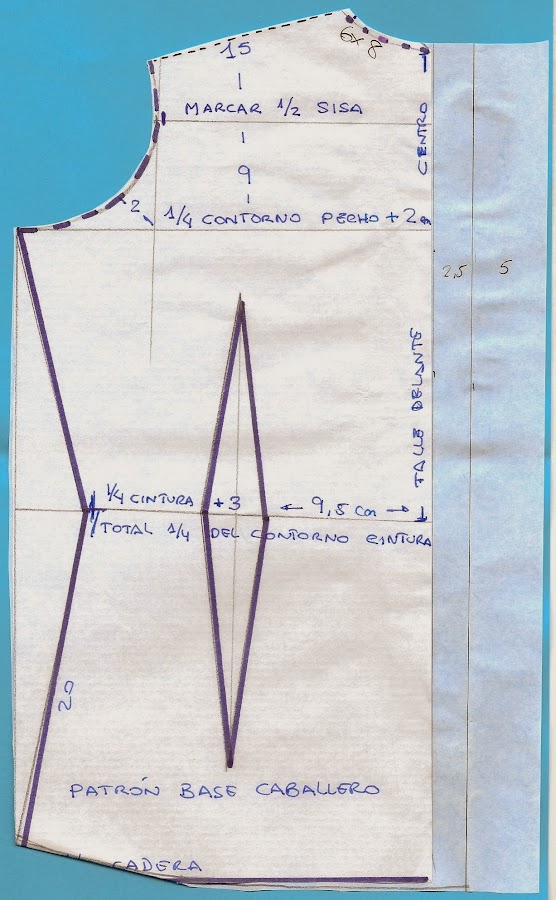 6x8
15
MARCAR 1/2 SISA
CENTRO
9
2
1/4 CONTORNO PECHO + 2 cm
2,5
5
TALLE DELANTE
1/4 CINTURA + 3
9,5 cm
TOTAL 1/4 DEL CONTORNO CINTURA
20
PATRÓN BASE CABALLERO
CADERA